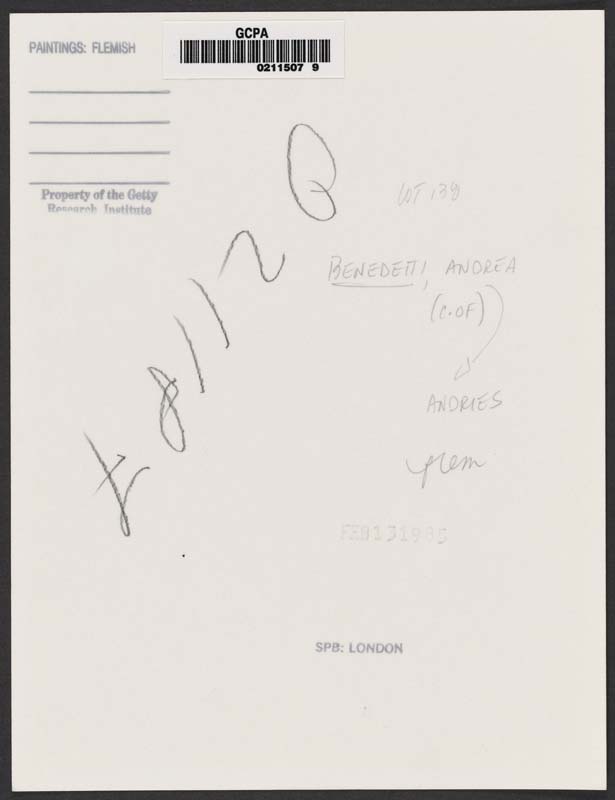 PAINTINGS: FLEMISH
GCPA
0211507 9
Property of the Getty
Research Institute
LOT 138
BENEDETTI, ANDREA
(C. OF)
ANDRIES
Flem
FEB 13 1985
SPB: LONDON